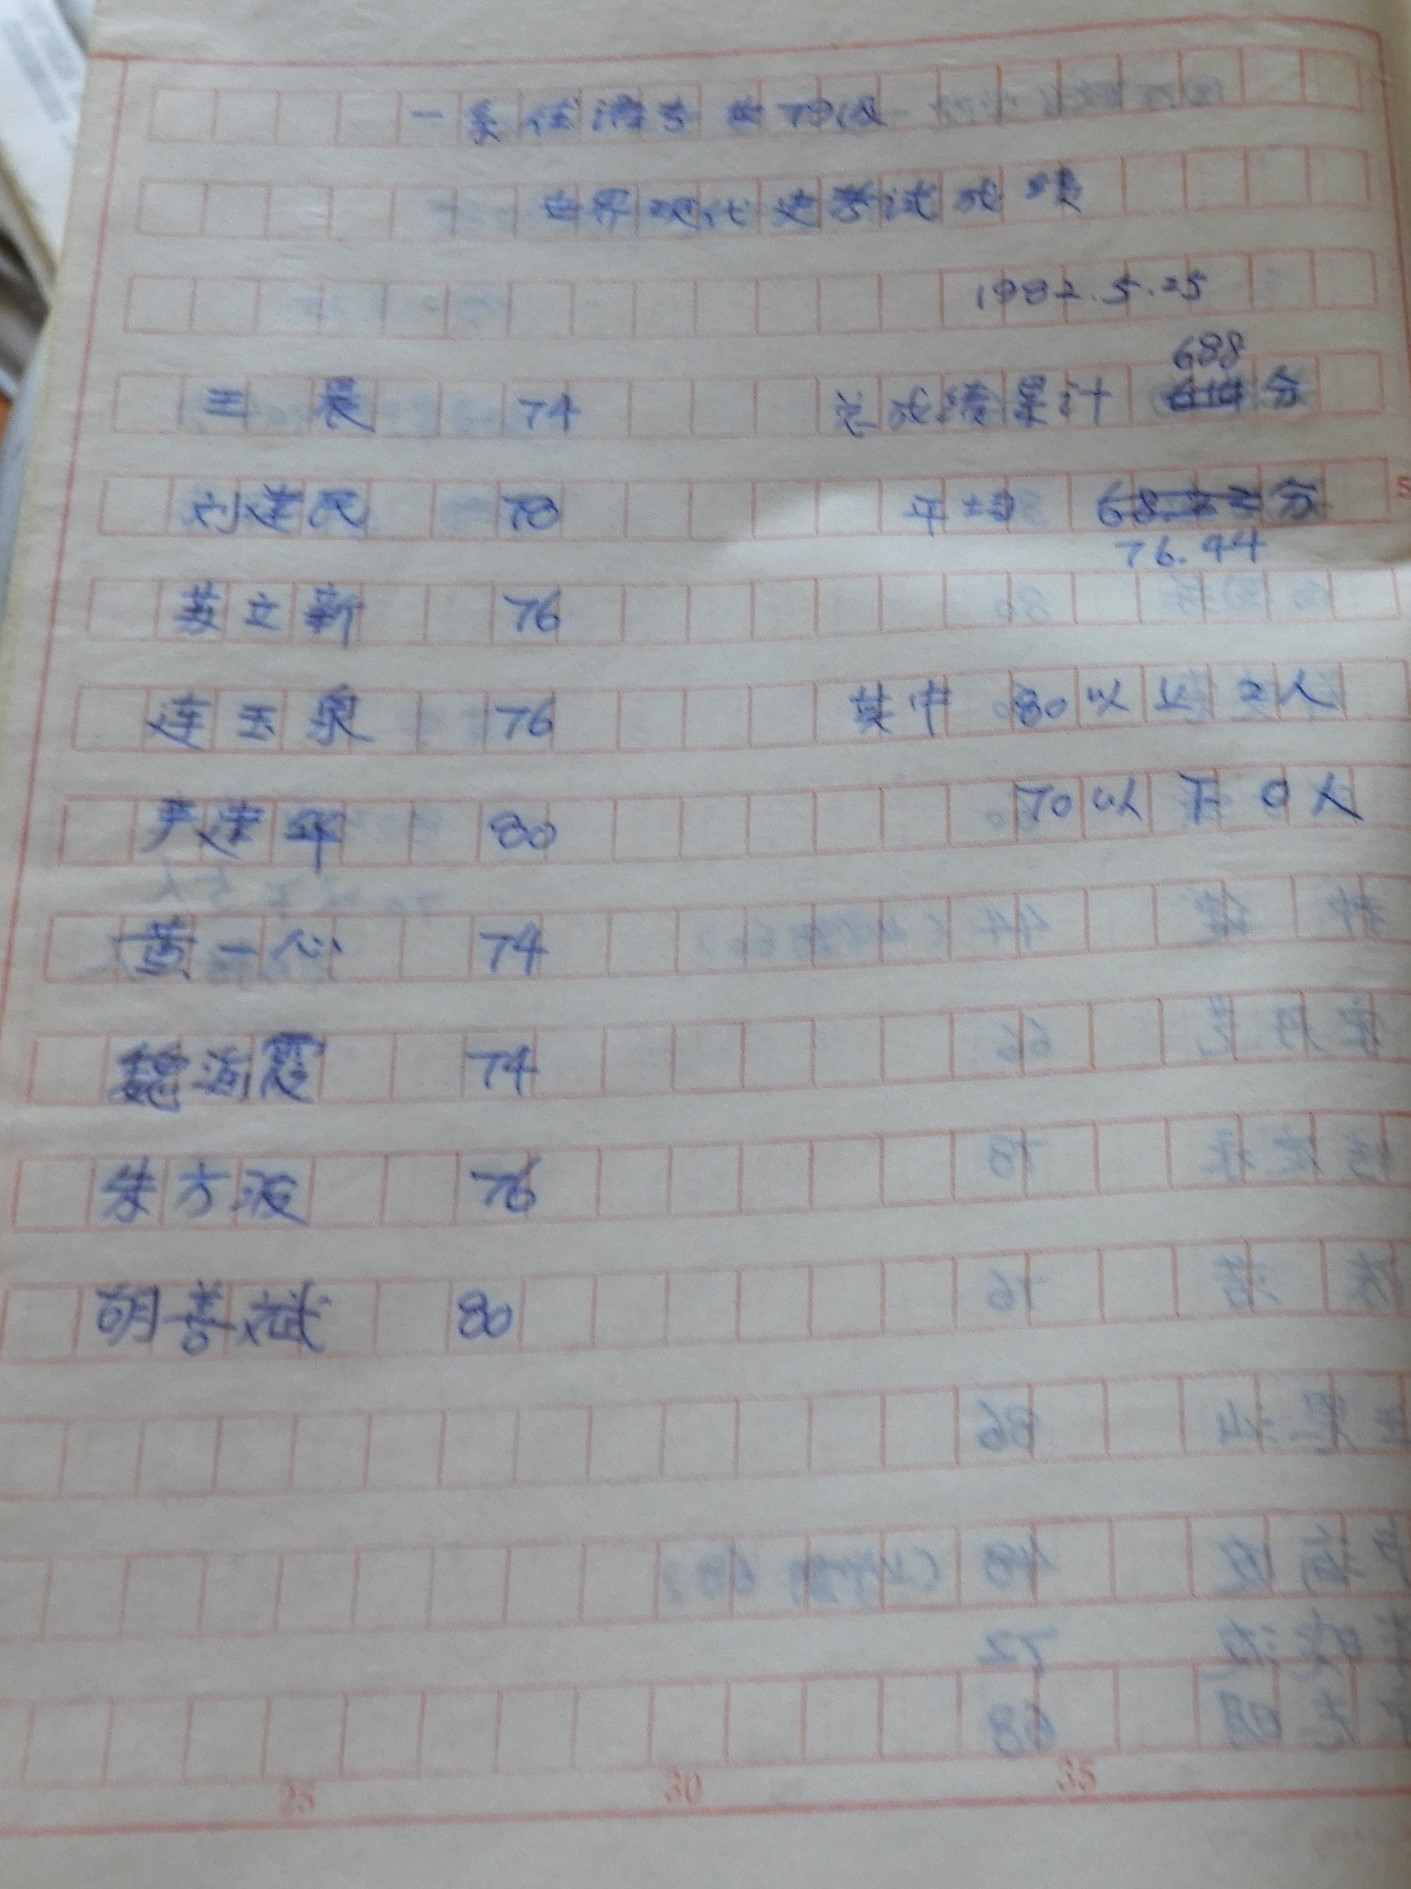 一系 79级
世界现代史考试成绩
1982.5.25
王晨 74 总成绩累计 688 分
刘建民 78 平均 68.22分
76.44
苏立新 76
连玉泉 76 其中 80以上2人
严建华 80 70以下0人
黄一心 74
魏海霞 74
朱方波 76
胡善斌 80
25 30 35